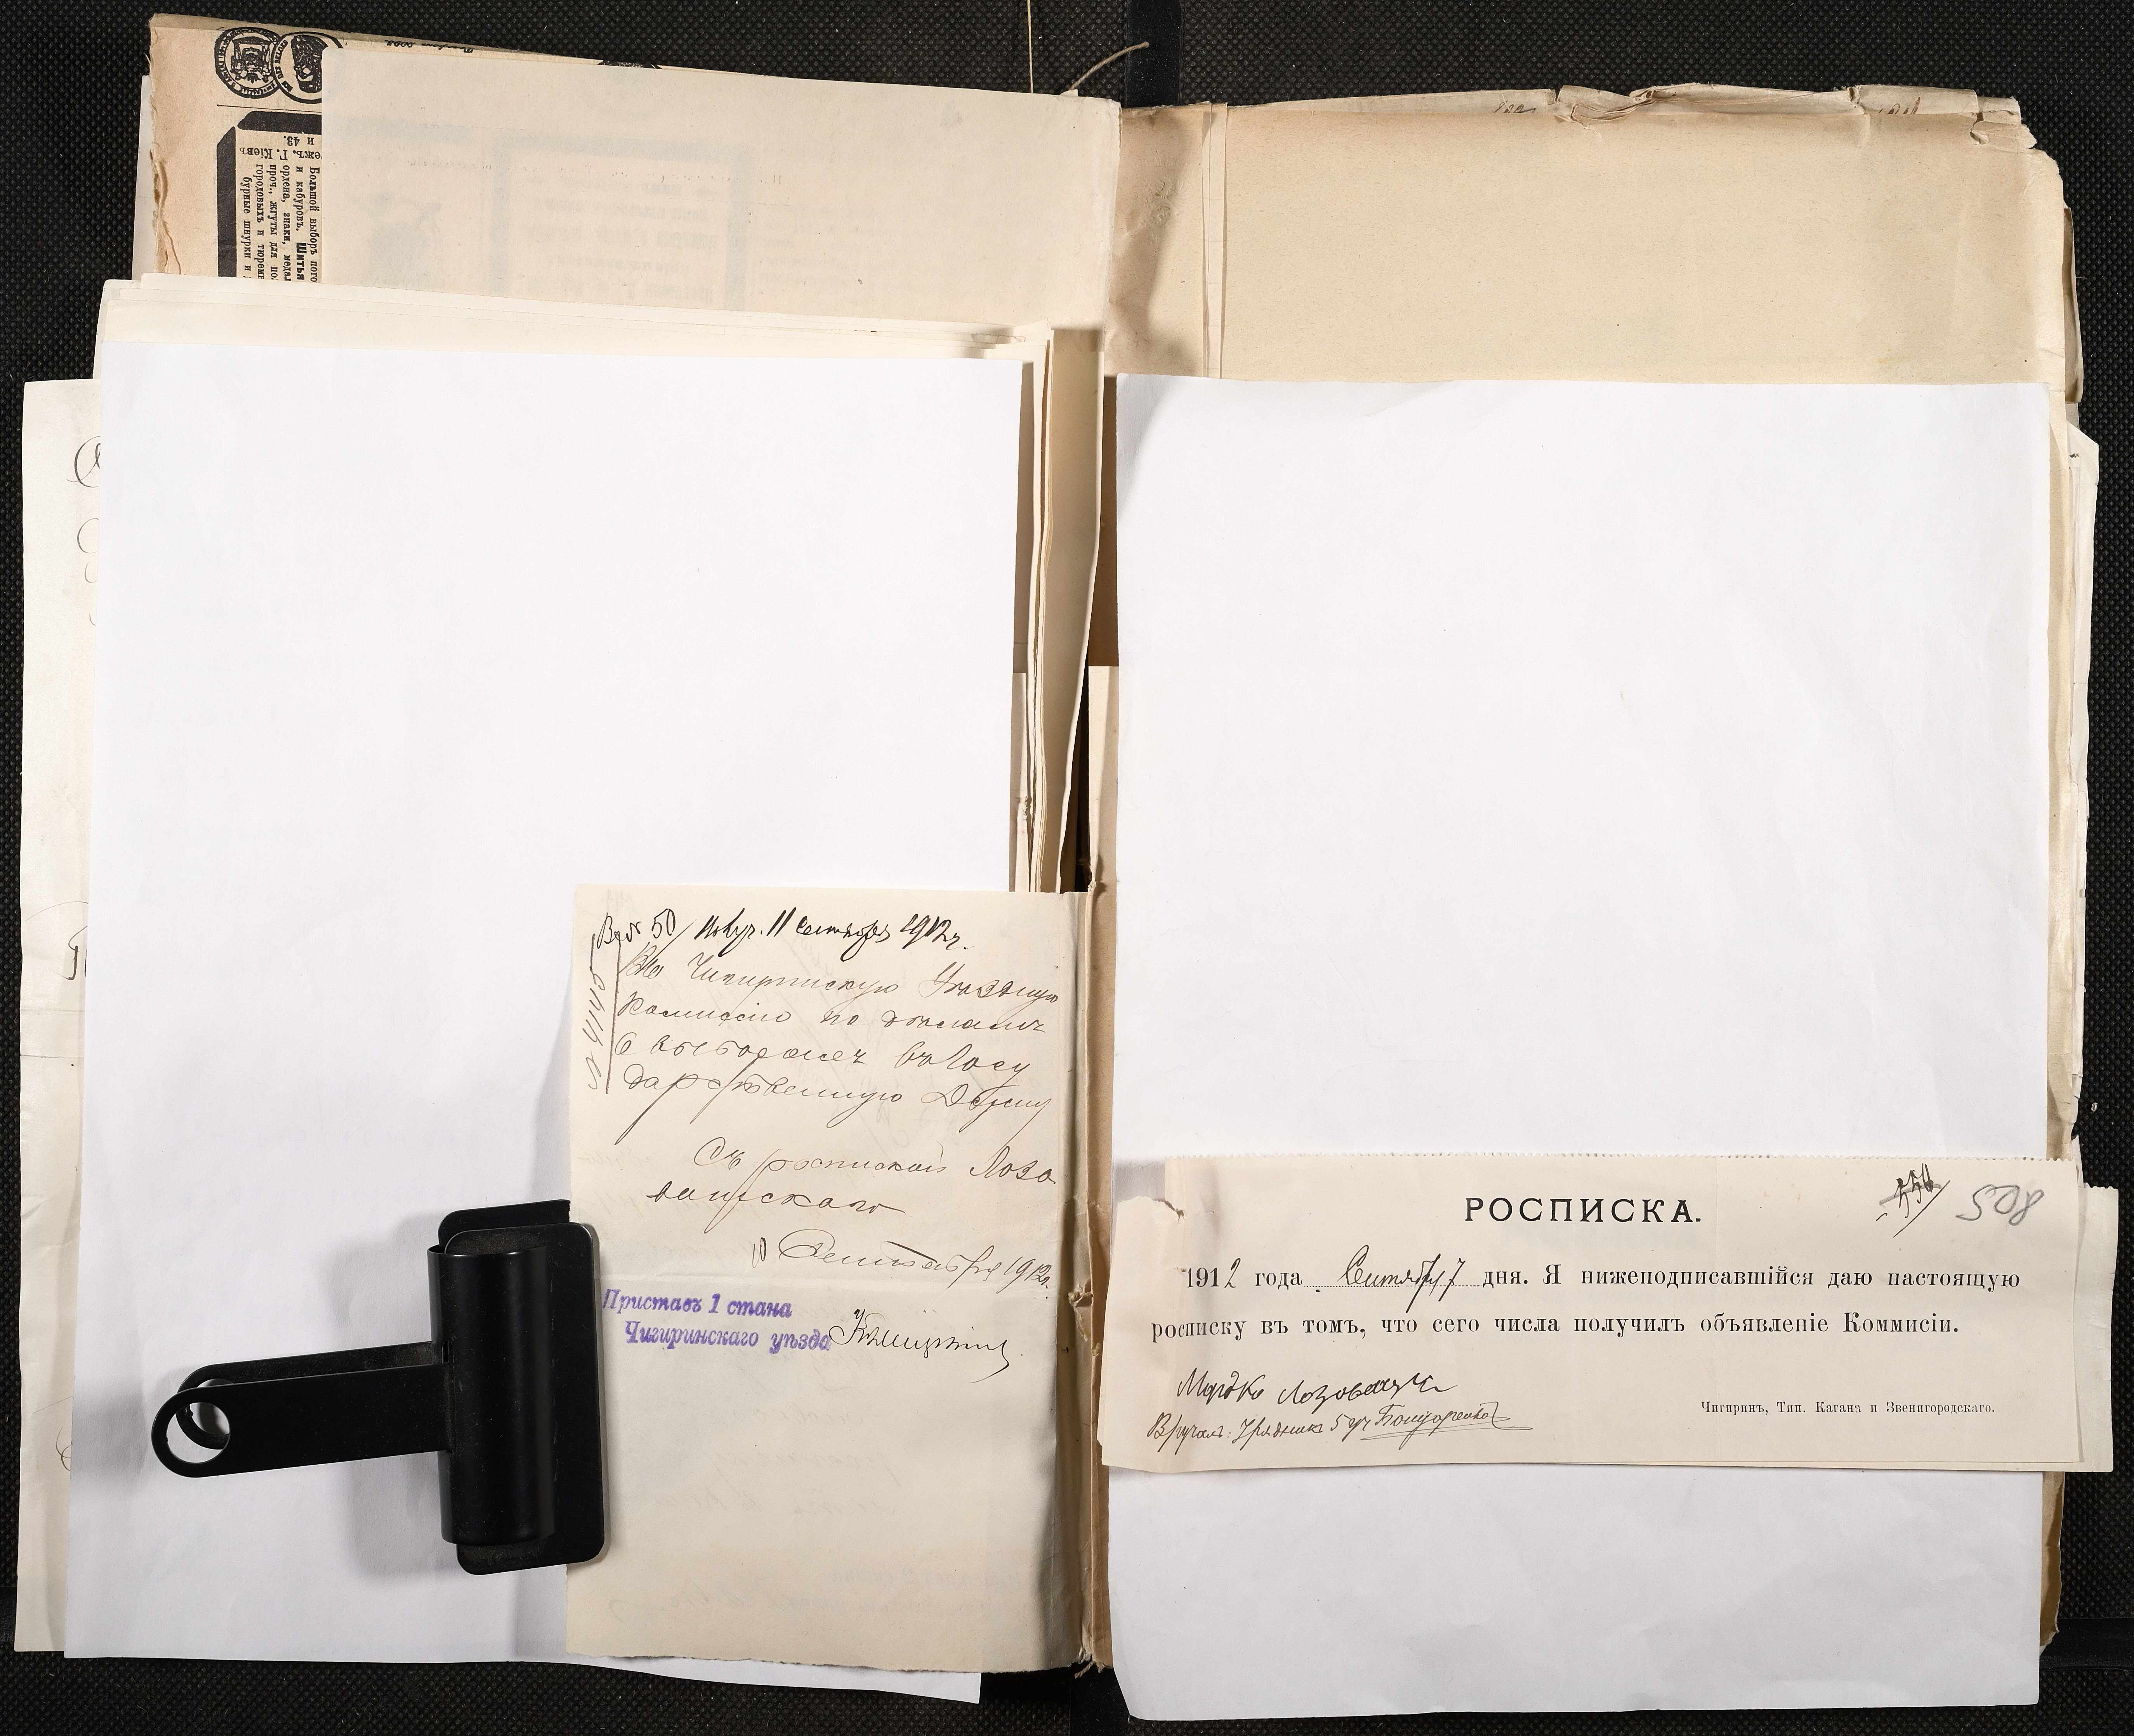 и 43.
ежъ. Г. Кіевъ
Большой выборъ пого
и кабуровъ. Шитья
ордена, знаки, медал
проч., жгуты для по
городовыхъ и тюрем
бурные шнурки и
Вх № 50/ Получ. 11 Сентября 1912 г.
Въ Чигиринскую Уѣздную
Комиссію по дѣламъ
о выборахъ въ Госу
дарственную Думу
Съ роспиской Лозо
ватскаго
10 Сентября 1912 г.
Приставъ 1 стана
Чигиринскаго уѣзда
РОСПИСКА.
508
1912 года Сентября 7 дня. Я нижеподписавшійся даю настоящую
росписку въ томъ, что сего числа получилъ объявленіе Коммисіи.
Мордко
Вручилъ: Урядникъ 5 уч Бондаренко
Чигиринъ, Тип. Кагана и Звенигородскаго.